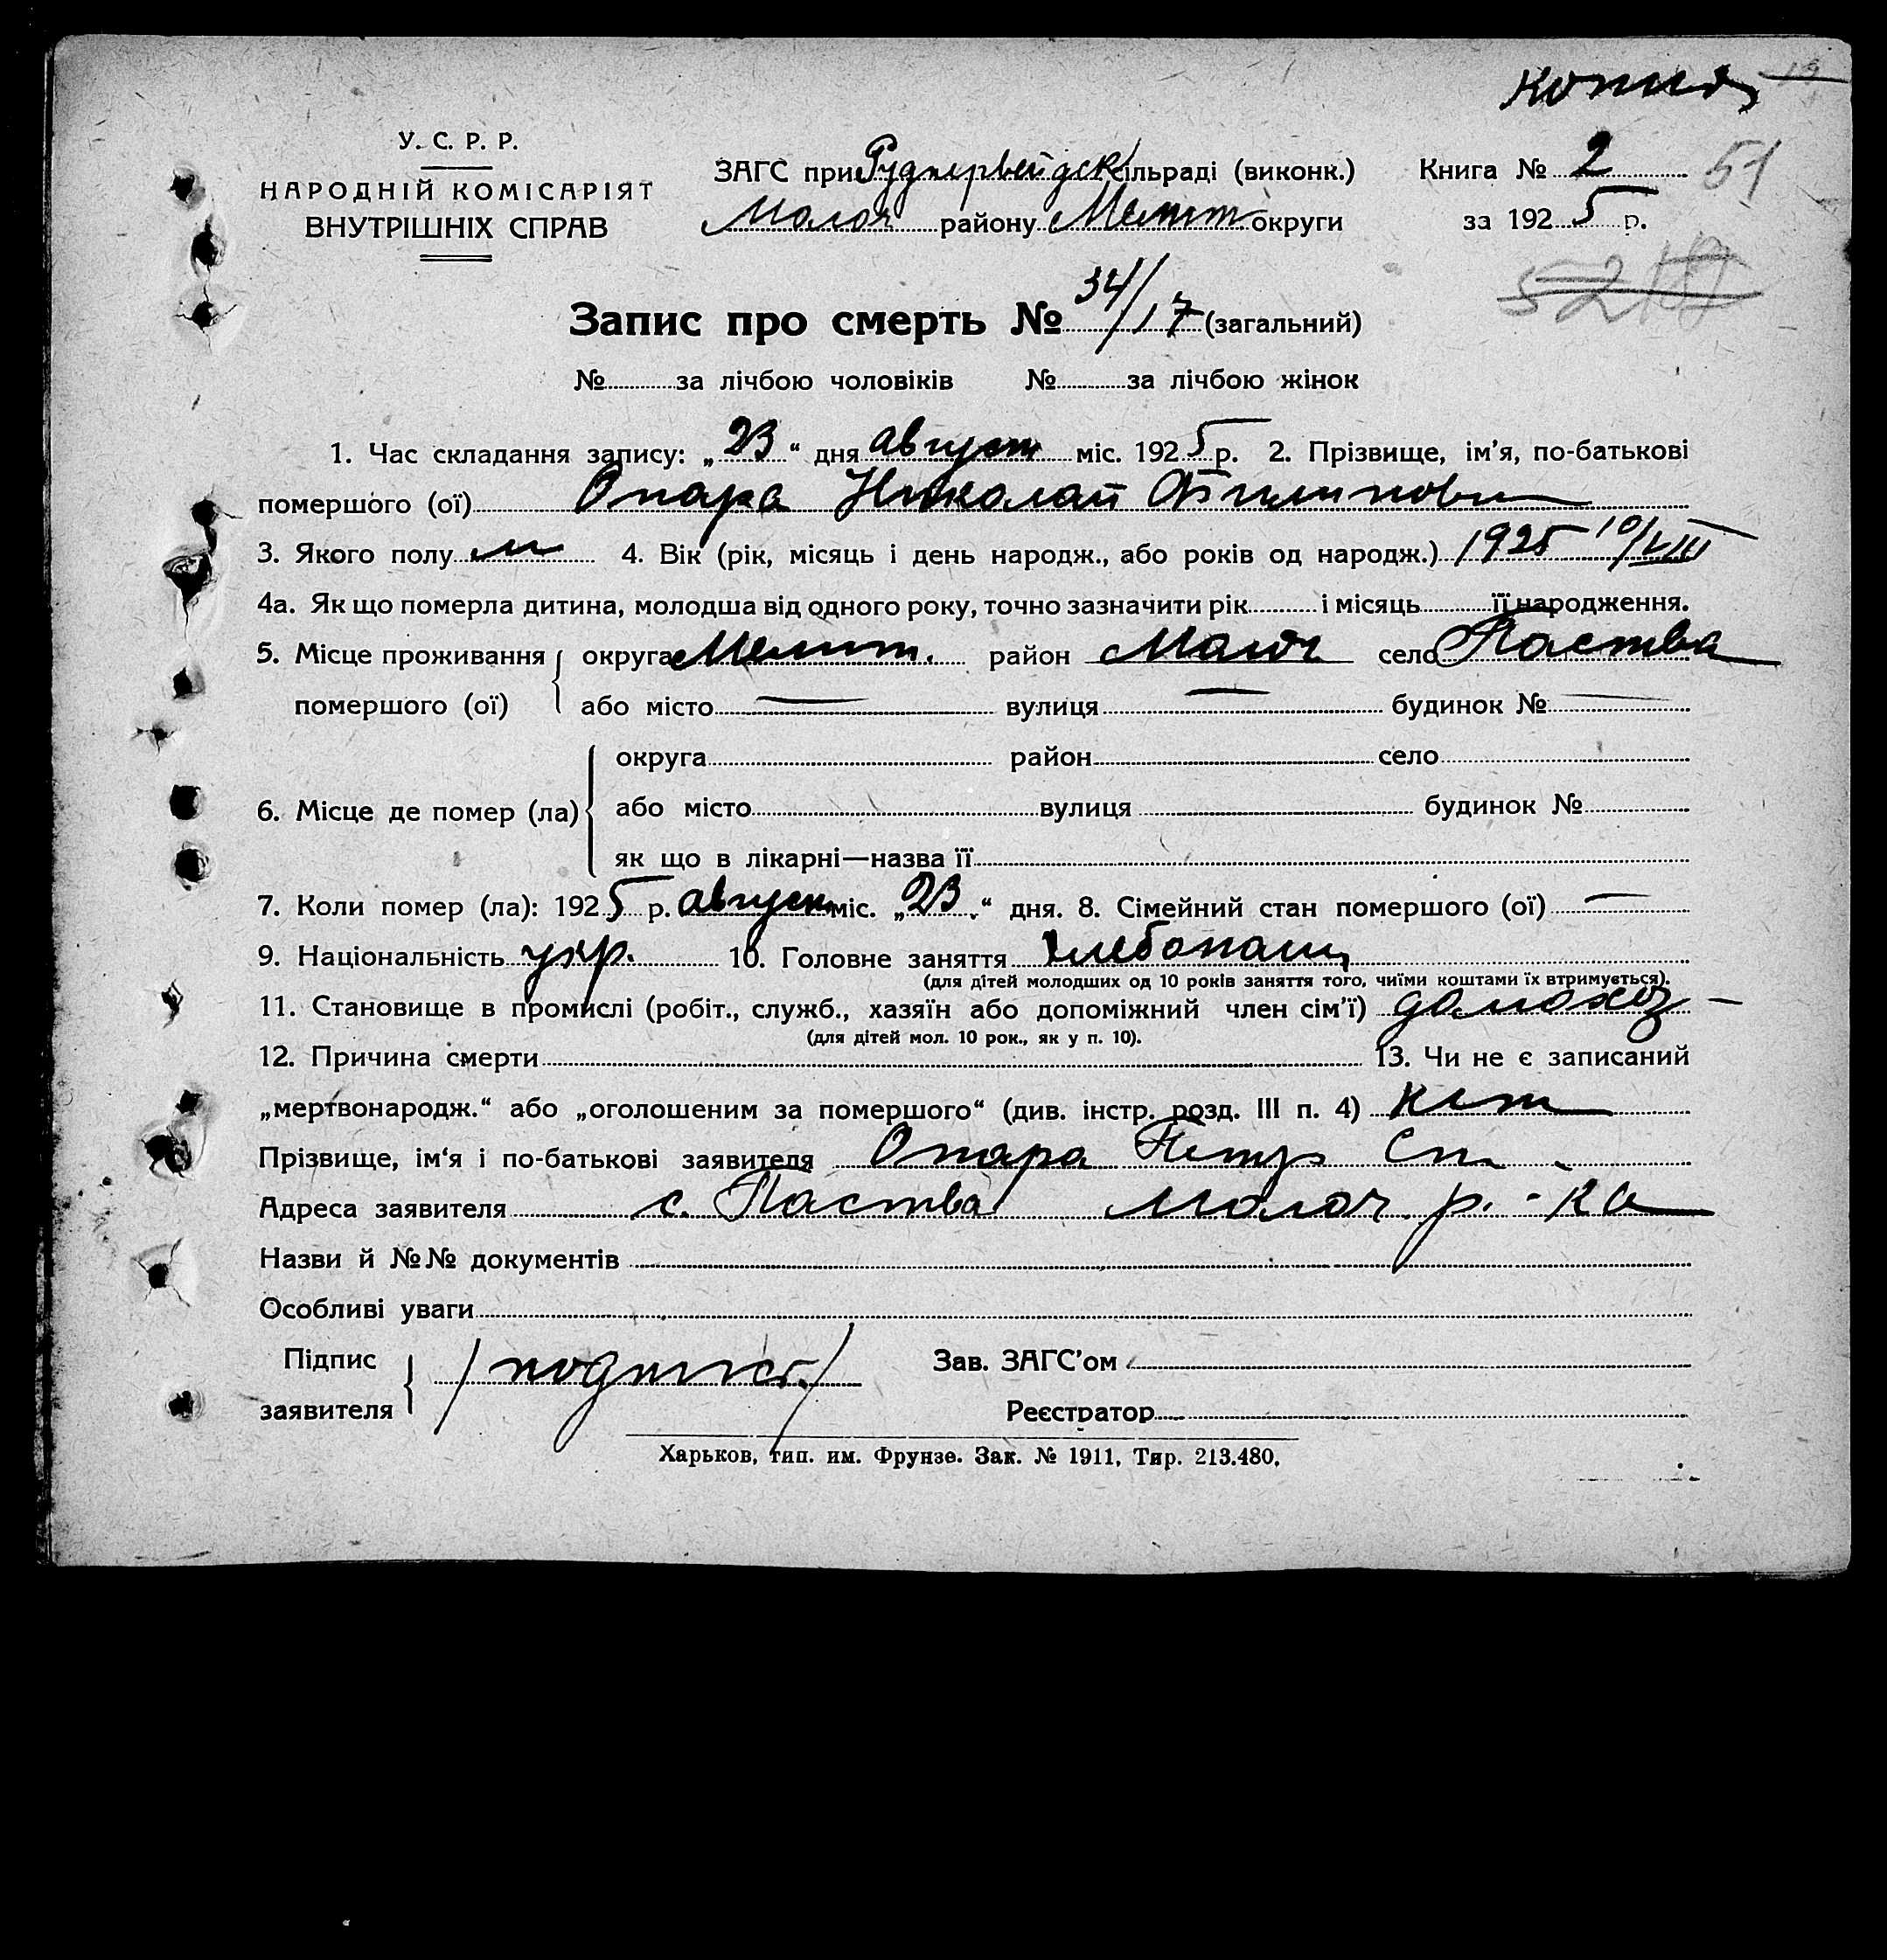 копия 19
У. С. Р. Р.
НАРОДНІЙ КОМІСАРІЯТ
ВНУТРІШНІХ СПРАВ
ЗАГС при Руднервейдск ільраді (виконк.)
Молоч району Мелит. округи
Книга № 2 51
за 1925 р.
52
Запис про смерть № 34/17 (загальний)
№ за лічбою чоловіків № за лічбою жінок
1. Час складання запису: „23“ дня август міс. 1925 р. 2. Прізвище, ім'я, по-батькові
помершого (ої) Опара Николай Филипови
3. Якого полу м 4. Вік (рік, місяць і день народж., або років од народж.) 1925 10/VIII
4а. Як що померла дитина, молодша від одного року, точно зазначити рік і місяць її народження.
5. Місце проживання округа Мелит. район Молоч село Паства
помершого (ої) або місто — вулиця — будинок № —
округа район село
6. Місце де помер (ла) або місто вулиця будинок №
як що в лікарні—назва її
7. Коли помер (ла): 1925 р. август міс. „23“ дня. 8. Сімейний стан помершого (ої) —
9. Національність укр. 10. Головне заняття хлебопаш
(для дітей молодших од 10 років заняття того, чиїми коштами їх втримується).
11. Становище в промислі (робіт., служб., хазяїн або допоміжний член сім'ї) домохоз —
(для дітей мол. 10 рок., як у п. 10).
12. Причина смерти 13. Чи не є записаний
„мертвонародж.“ або „оголошеним за помершого“ (див. інстр. розд. III п. 4) нет
Прізвище, ім'я і по-батькові заявителя Опара Петр Сп
Адреса заявителя с. Паства Молоч. р.-ка
Назви й №№ документів
Особливі уваги
Підпис
заявителя /подпись/
Зав. ЗАГС'ом
Реєстратор
Харьков, тип. им. Фрунзе. Зак. № 1911, Тир. 213.480.